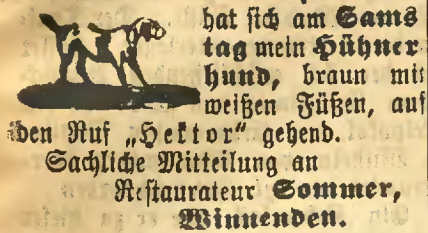 hat sich am Sams
tag mein Hühner
hund, braun mit
weißen Füßen, auf
den Ruf „Hektor" gehend.
Sachliche Mitteilung an
Restaurateur Sommer,
Winnenden.